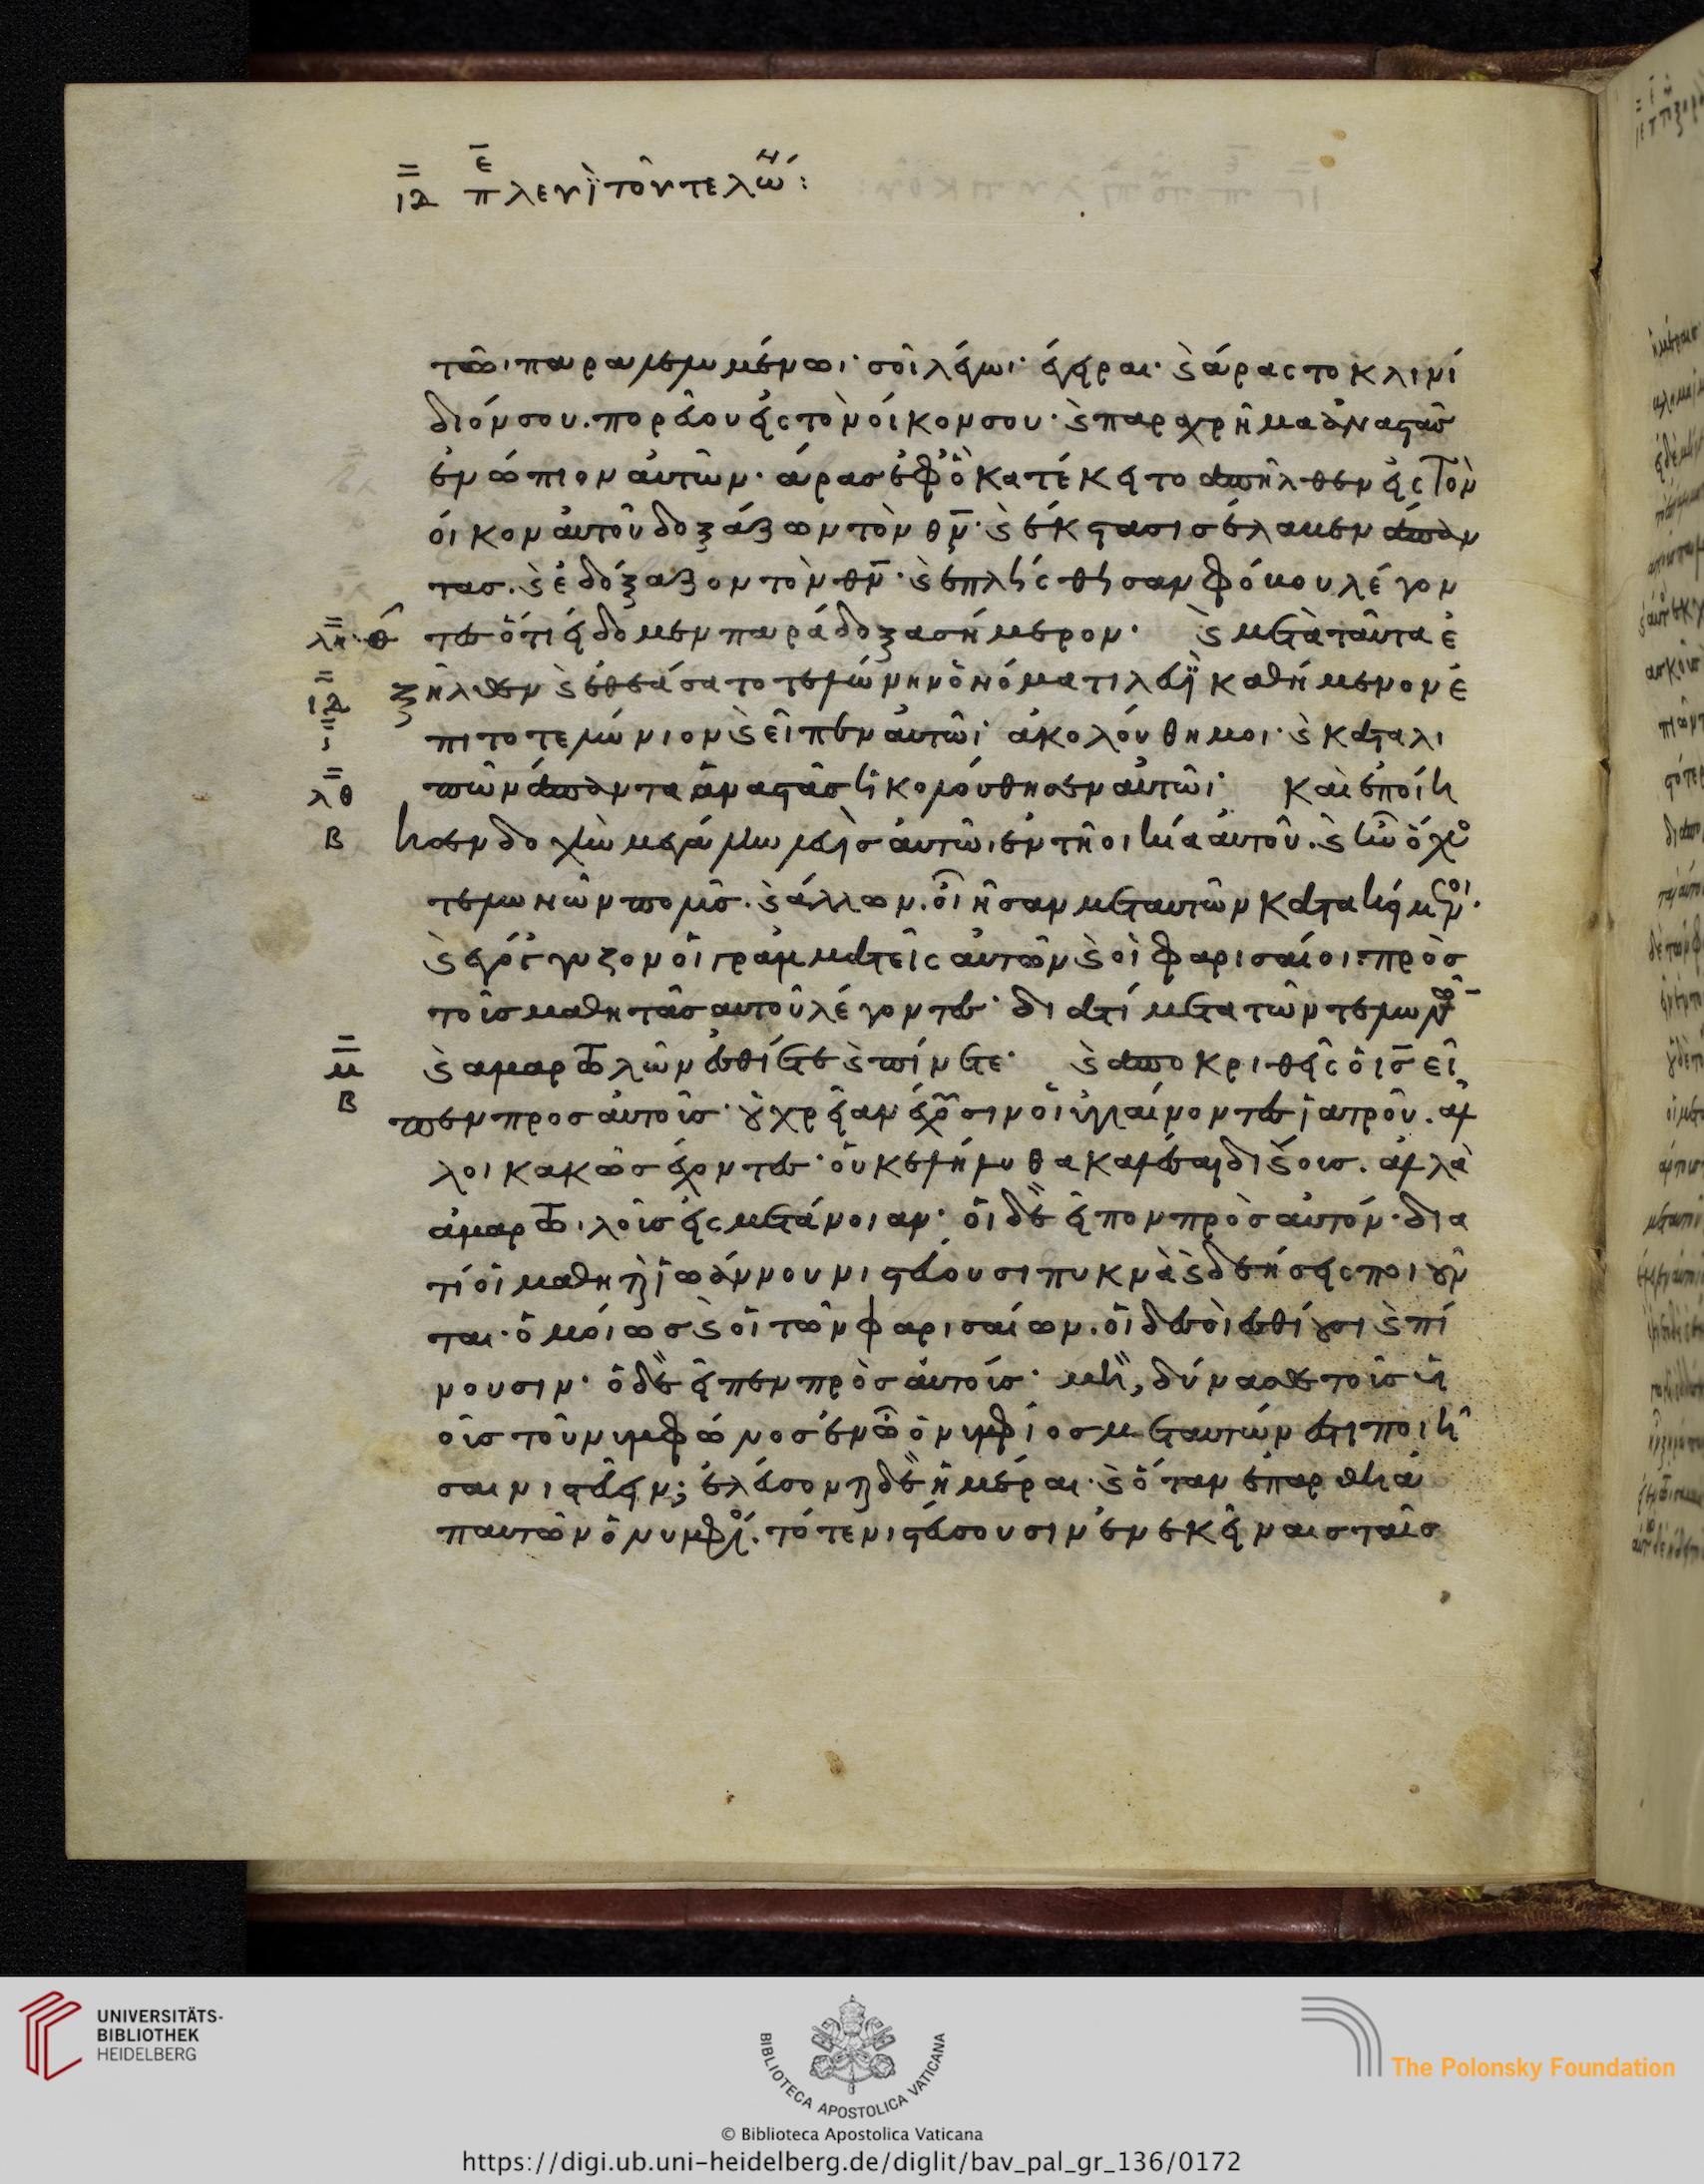 ιδ περὶ λευὶ τοῦ τελώνου:
τῶι παραλελυμένωι· σοὶ λέγωι· ἔγειραι· ϗ ἄρας το κλινί
διόν σου. πορεύου εἰς τὸν οἶκον σου· ϗ παραχρῆμα ἀναστὰς
ἐνώπιον αὐτῶν· ἄρας ἐφ ὃ κατέκειτο ἀπῆλθεν εἰς τὸν
οἶκον αὐτοῦ δοξάζων τὸν θν· ϗ ἔκστασις ἔλαβεν ἅπαν
τας. ϗ ἐδόξαζον τὸν θν· ϗ ἐπλήσθησαν φόβου λέγον
λη θ τες ὅτι εἴδομεν παράδοξα σήμερον· ϗ μετὰ ταῦτα ἐ
ιδ ξῆλθεν ϗ ἐθεάσατο τελώνην ὀνόματι λευῒ καθήμενον ἐ
πι το τελώνιον ϗ εἶπεν αὐτῶι· ἀκολούθη μοι· ϗ καταλι
λθ πὼν ἅπαντα ἀναστὰς ἠκολούθησεν αὐτῶι· καὶ ἐποίη
β ησεν δοχὴν μεγάλην λευῒς αὐτῶι ἐν τῆ οικία αὐτοῦ. ϗ ἦν ὄχλος
τελωνῶν πολὺς. ϗ ἄλλων. οἳ ἦσαν μετ αυτῶν κατακείμενοι·
ϗ εγόγγυζον οἱ γραμματεῖς αὐτῶν ϗ οἱ φαρισαίοι· πρὸς
τοὺς μαθητὰς αυτοῦ λέγοντες· διατί μετα τῶν τελωνῶν
μ ϗ αμαρτωλῶν ἐσθίετε ϗ πίνετε· ϗ αποκριθεὶς ὁ ις εἶ
β πεν προς αὐτοὺς· ȣ χρείαν ἔχουσιν οἱ ὑγιαίνοντες ἰατροῦ. αλ
λοι κακῶς ἔχοντες· οὐκ ελήλυθα καλέσαι δικαίους. ἀλλὰ
ἁμαρτωλοὺς εἰς μετάνοιαν· οἱ δὲ εἶπον πρὸς αὐτόν· δια
τί οἱ μαθηταὶ ἰωάννου νηστεύουσι πυκνὰ ϗ δεήσεις ποιȣν
ται· ὁμοίως ϗ οἱ τῶν φαρισαίων. οἱ δὲ σοὶ ἐσθίȣσι ϗ πί
νουσιν· ὁ δὲ εἶπεν πρὸς αὐτούς· μὴ, δύνασθε τοὺς υἱ
οὺς τοῦ νυμφώνος ἐν ὧ ὁ νυμφίος μετ αυτών εστι ποιῆ
σαι νηστεύειν; ἐλεύσονται δὲ ἡμέραι· ϗ ὅταν ἐπαρθῆ ἀ
π αυτῶν ὁ νυμφίος. τότε νηστεύσουσιν ἐν εκείναις ταῖς
UNIVERSITÄTS-
BIBLIOTHEK
HEIDELBERG
BIBLIOTECA APOSTOLICA VATICANA
The Polonsky Foundation
© Biblioteca Apostolica Vaticana
https://digi.ub.uni-heidelberg.de/diglit/bav_pal_gr_136/0172